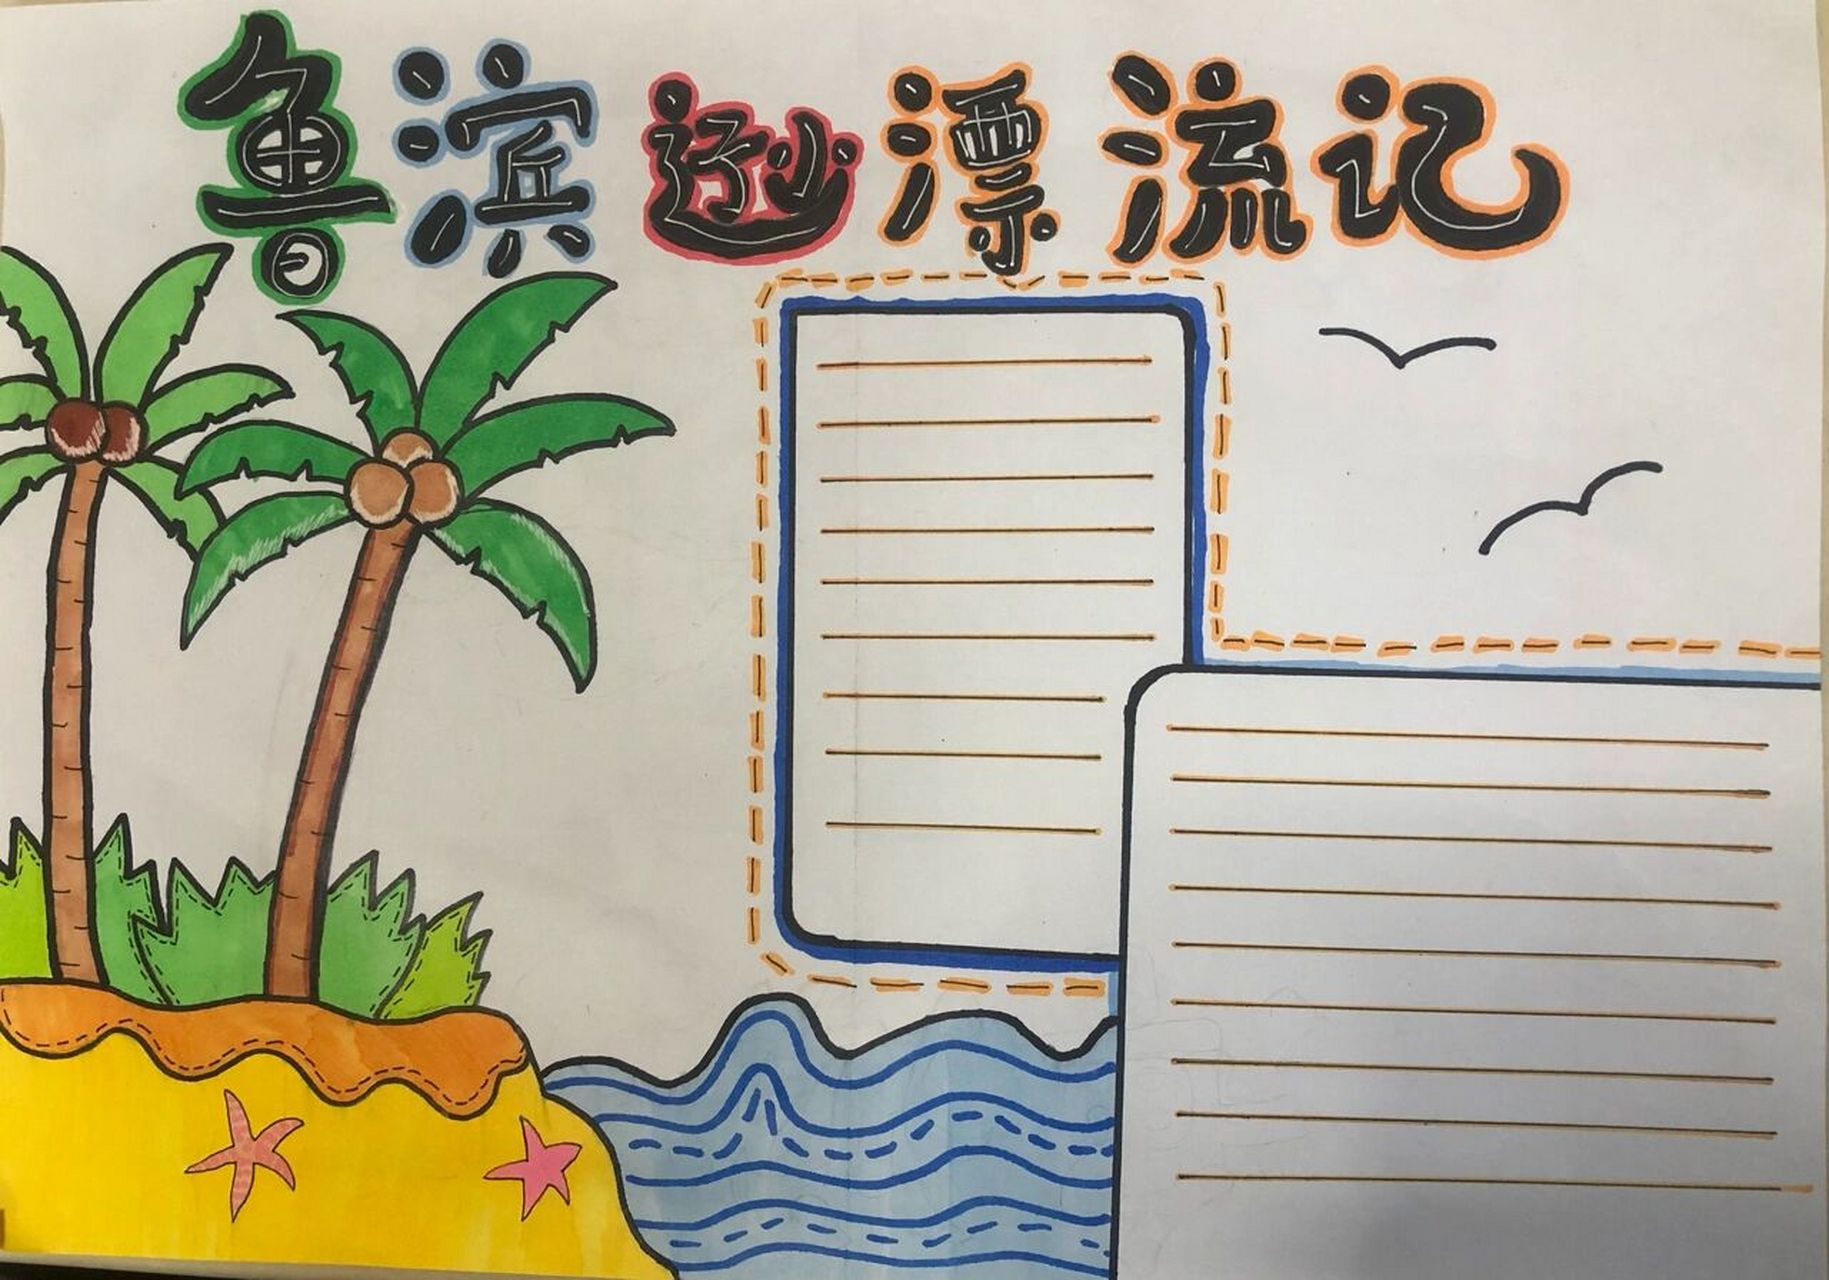 鲁滨逊漂流记